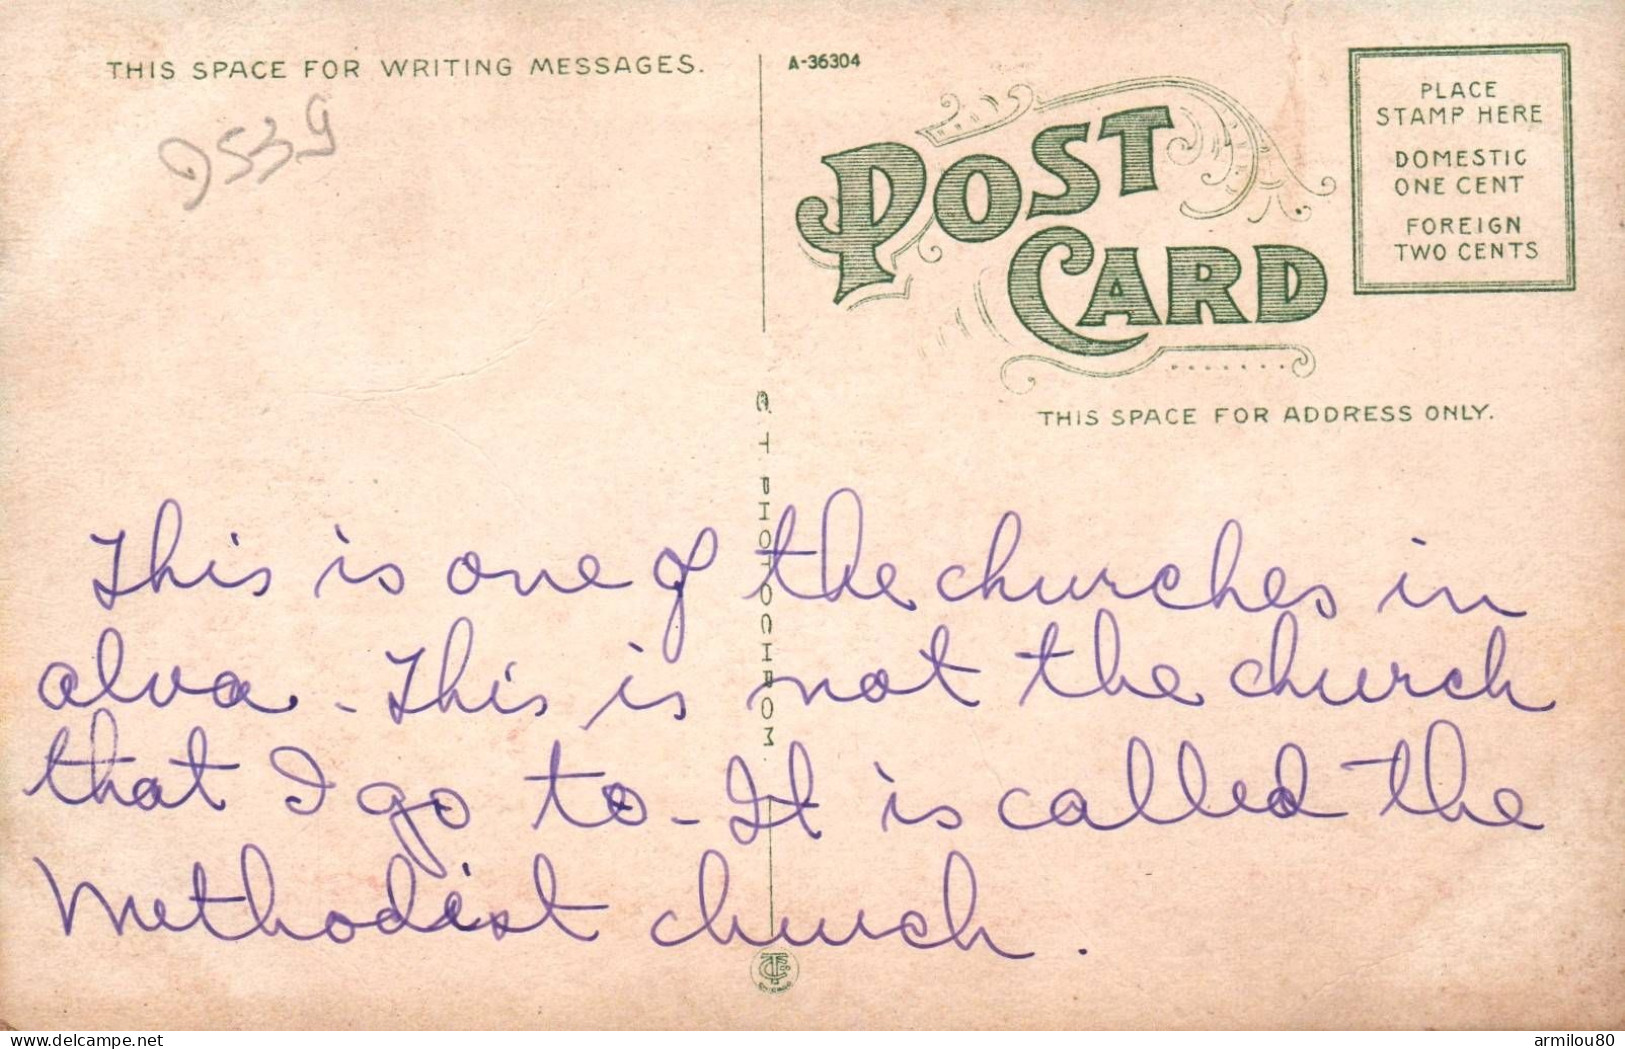 THIS SPACE FOR WRITING MESSAGES.
A-36304
9539
POST
CARD
PLACE
STAMP HERE
DOMESTIC
ONE CENT
FOREIGN
TWO CENTS
THIS SPACE FOR ADDRESS ONLY.
C T PHOTOCHROM
This is one of the churches in
alva - This is not the church
that I go to - It is called the
Methodist church.
delcampe.net
armilou80